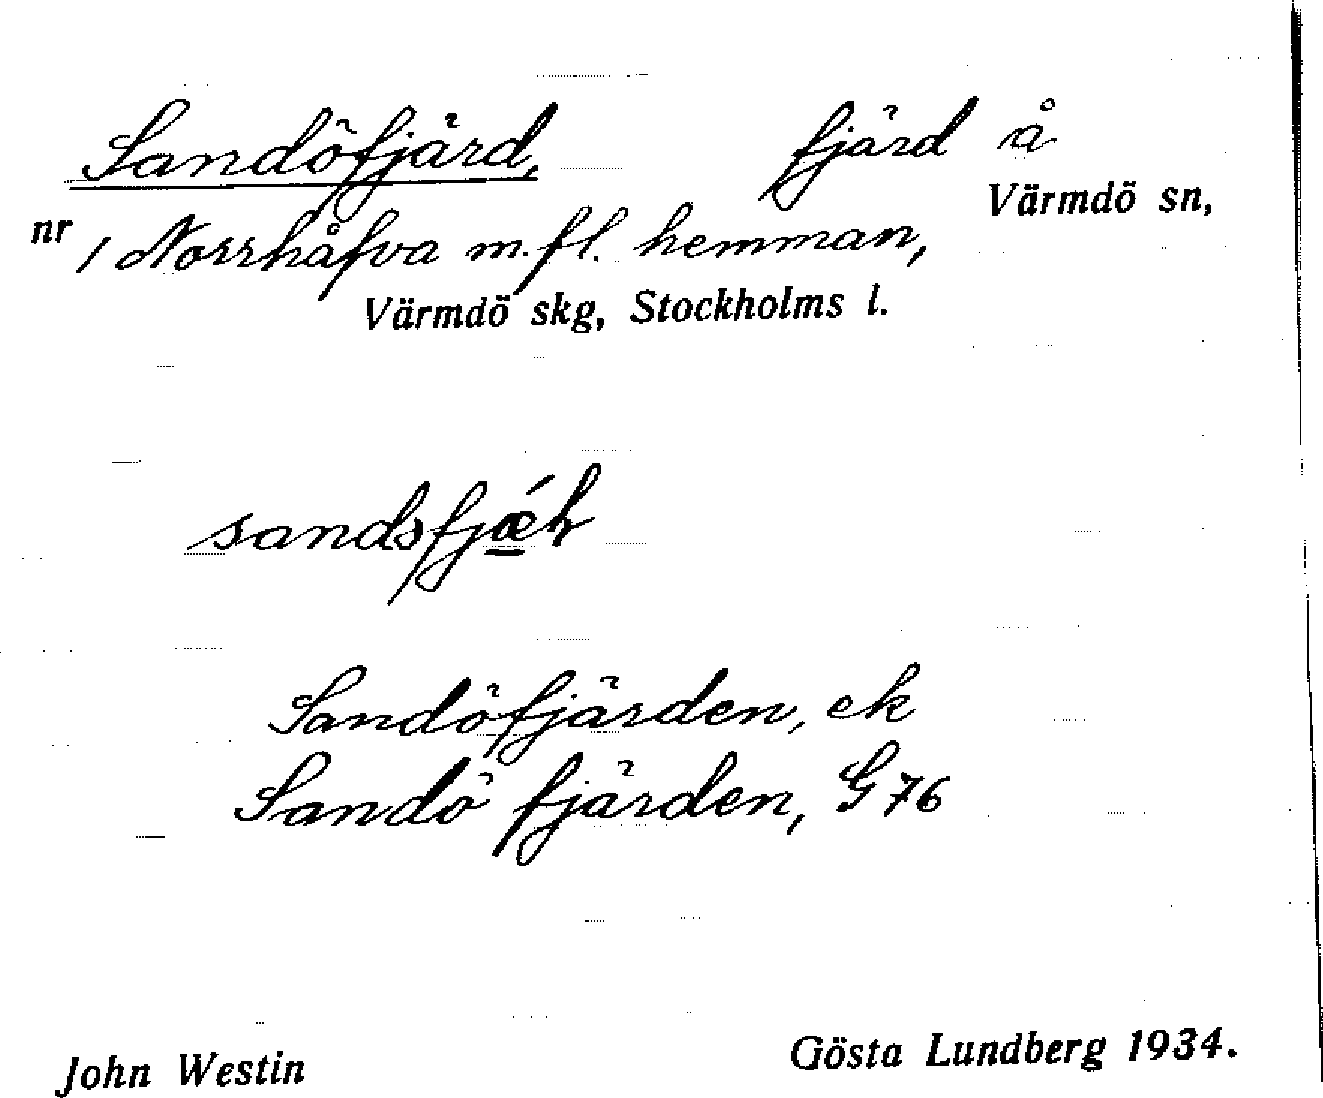 Sandöfjärd, fjärd å
Värmdö sn,
nr 1 Norrhåfva m.fl. hemman,
Värmdö skg, Stockholms l.
Sandöfjärden, ek
Sandö fjärden, G 76
John Westin Gösta Lundberg 1934.